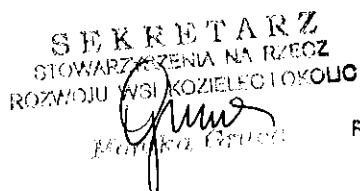 SEKRETARZ
STOWARZYSZENIA NA RZECZ
ROZWOJU WSI KOZIELEC I OKOLIC
R